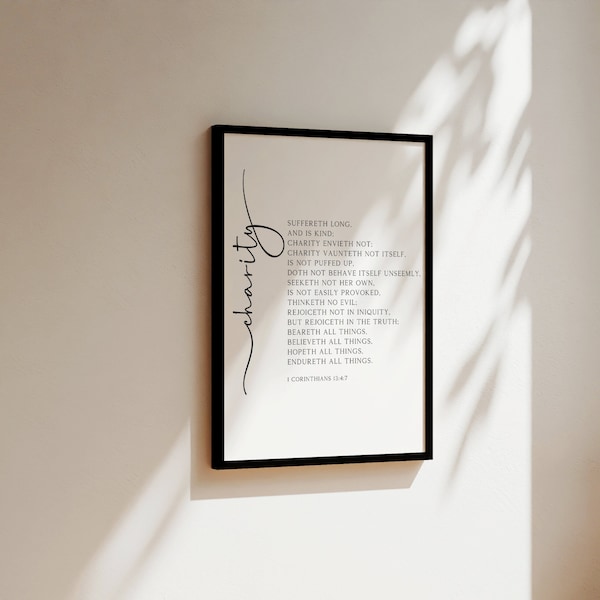 charity
SUFFERETH LONG,
AND IS KIND;
CHARITY ENVIETH NOT;
CHARITY VAUNTETH NOT ITSELF,
IS NOT PUFFED UP,
DOTH NOT BEHAVE ITSELF UNSEEMLY,
SEEKETH NOT HER OWN,
IS NOT EASILY PROVOKED,
THINKETH NO EVIL;
REJOICETH NOT IN INIQUITY,
BUT REJOICETH IN THE TRUTH;
BEARETH ALL THINGS,
BELIEVETH ALL THINGS,
HOPETH ALL THINGS,
ENDURETH ALL THINGS.
1 CORINTHIANS 13:4-7